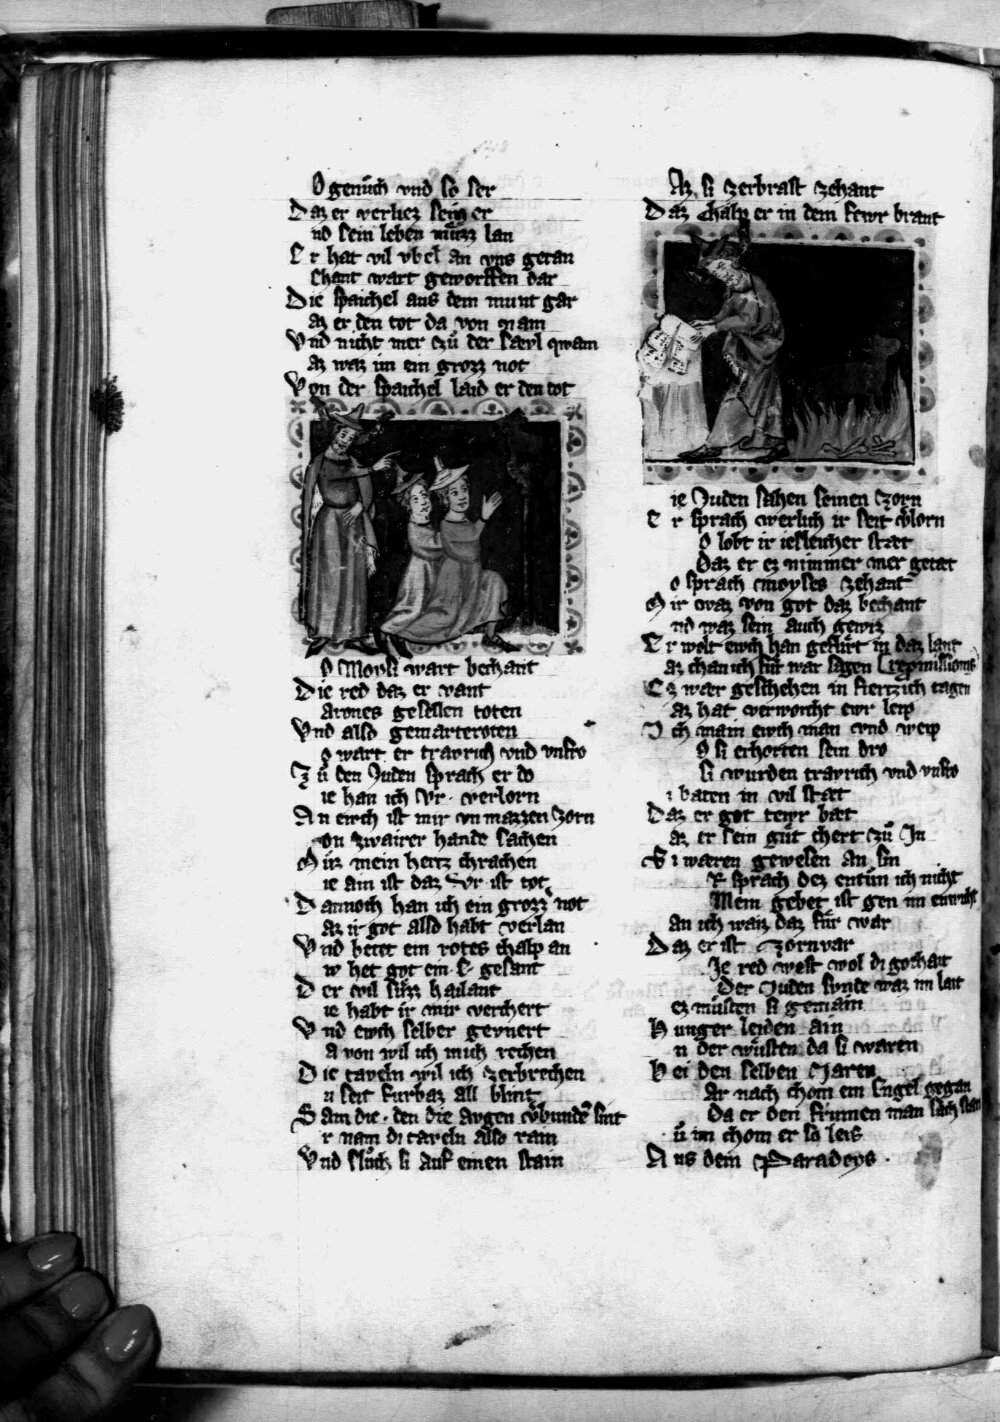 O genuch vnd so ser
Daz er verliez sein er
nd sein leben muezz lan
Er hat vil vbel an vns getan
Ehant wart geworffen dar
Die spaichel aus dem munt gar
az er den tot da von nam
Vnd nicht mer czu der sæyl qwam
az waz im ein grozz not
Von der spaichel laid er den tot
O Moysi wart bechant
Die red daz er vant
Arones gesellen toten
Vnd also gemarteroten
o wart er travrich vnd vnfro
Zu den Juden sprach er do
ie han ich Vr. verlorn
An ewch ist mir vnmazzen zorn
on zwairer hande sachen
Muz mein hertz chrachen
ie ain ist daz Vr ist tot
Dannoch han ich ein grozz not
az ir got also habt verlan
Vnd betet ein rotes chalp an
w het got ein e gesant
Der wil suzz hailant
ie habt ir mir verchert
Vnd ewch selber geunert
a von wil ich mich rechen
Die taveln wil ich zerbrechen
u seit furbaz all blint
Sam die den die avgen verbunden sint
r nam di taveln also rain
Vnd sluch si auf einen stain
Az si zerbrast zehant
Daz chalp er in dem fewr brant
ie Juden sahen seinen zorn
Er sprach werlich ir seit verlorn
o lobt ir iesleicher stæt
Daz er ez nimmer mer getæt
o sprach moyses zehant
Mir waz von got daz bechant
nd waz sein auch gewiz
Er wolt ewch han gefurt in daz lant
az chan ich fur war sagen repmissionis
Ez wær geschehen in fiertzich tagen
az hat verworcht ewr leip
Ich main ewch man vnd weip
O si erhorten sein dro
Si wurden travrich vnd vnfro
i baten in vil stæt
Daz er got tewr bæt
az er sein gut chert zu In
Si wæren gewesen an sin
Er sprach dez entun ich nicht
Mein gebet ist gen im enwicht
an ich waiz daz fur war
Daz er ist zornvar
Je red west wol di gothait
Der Juden sunde waz im lait
ez musten si gemain
Hunger leiden ain
n der wusten da si waren
Bei den selben Jaren
ar nach chom ein Engel gegan
Da er den frumen man sach stan
u im chom er so leis
Aus dem Paradeys